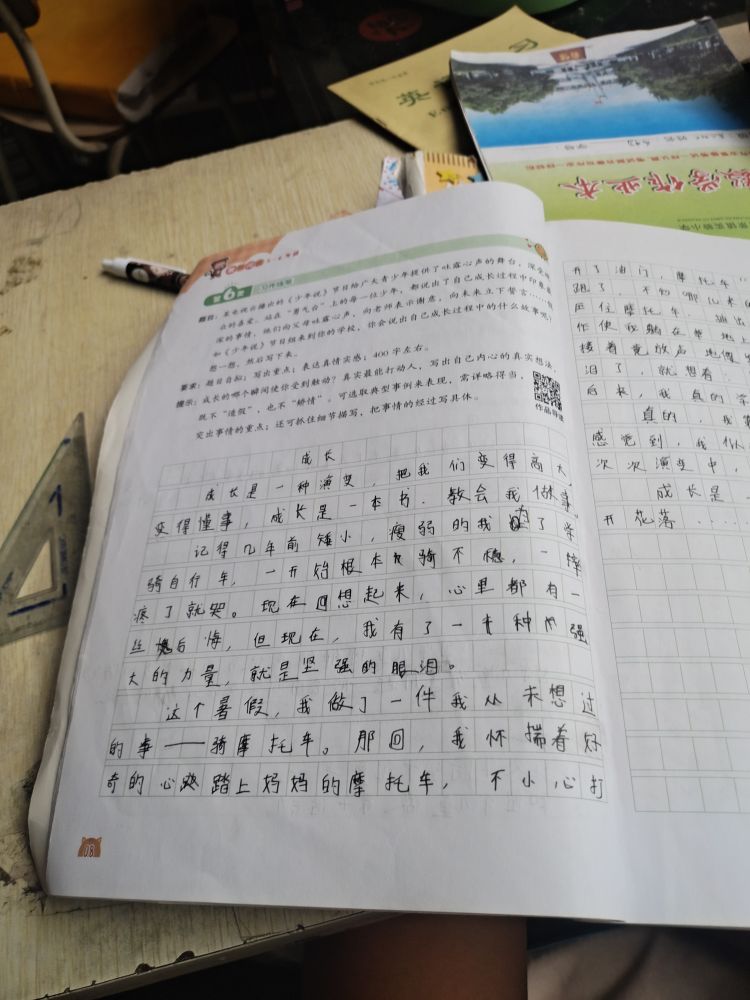 英
数学作业本
第6课
题目：某电视台播出的《少年说》节目给广大青少年提供了吐露心声的舞台，深受观
众的喜爱。站在“勇气台”上的每一位少年，都说出了自己成长过程中印象最
深的事情，他们向父母吐露心声，向老师表示谢意，向未来立下誓言……假
如《少年说》节目组来到你的学校，你会说出自己成长过程中的什么故事呢？
想一想，然后写下来。
要求：题目自拟；写出重点；表达真情实感；400字左右。
提示：成长的哪个瞬间使你受到触动？真实最能打动人，写出自己内心的真实想法，
既不“造假”，也不“矫情”。可选取典型事例来表现，需详略得当，
突出事情的重点；还可抓住细节描写，把事情的经过写具体。
作品导读
成长
成长是一种演变，把我们变得高大，
变得懂事，成长是一本书，教会我做事。
记得几年前矮小，瘦弱的我为了学
骑自行车，一开始根本骑不稳，一摔
疼了就哭。现在回想起来，心里都有一
丝后悔，但现在，我有了一种强
大的力量，就是坚强的眼泪。
这个暑假，我做了一件我从未想过
的事——骑摩托车。那回，我怀揣着好
奇的心踏上妈妈的摩托车，不小心打
08
开了油门，摩托车
跑了，不知哪儿来
压住摩托车，
作使我躺在草地
接着竟放声
泪了，就想着
后来，我真的学
真的，我
感觉到，我从
次次演变中，
成长是
开花落……